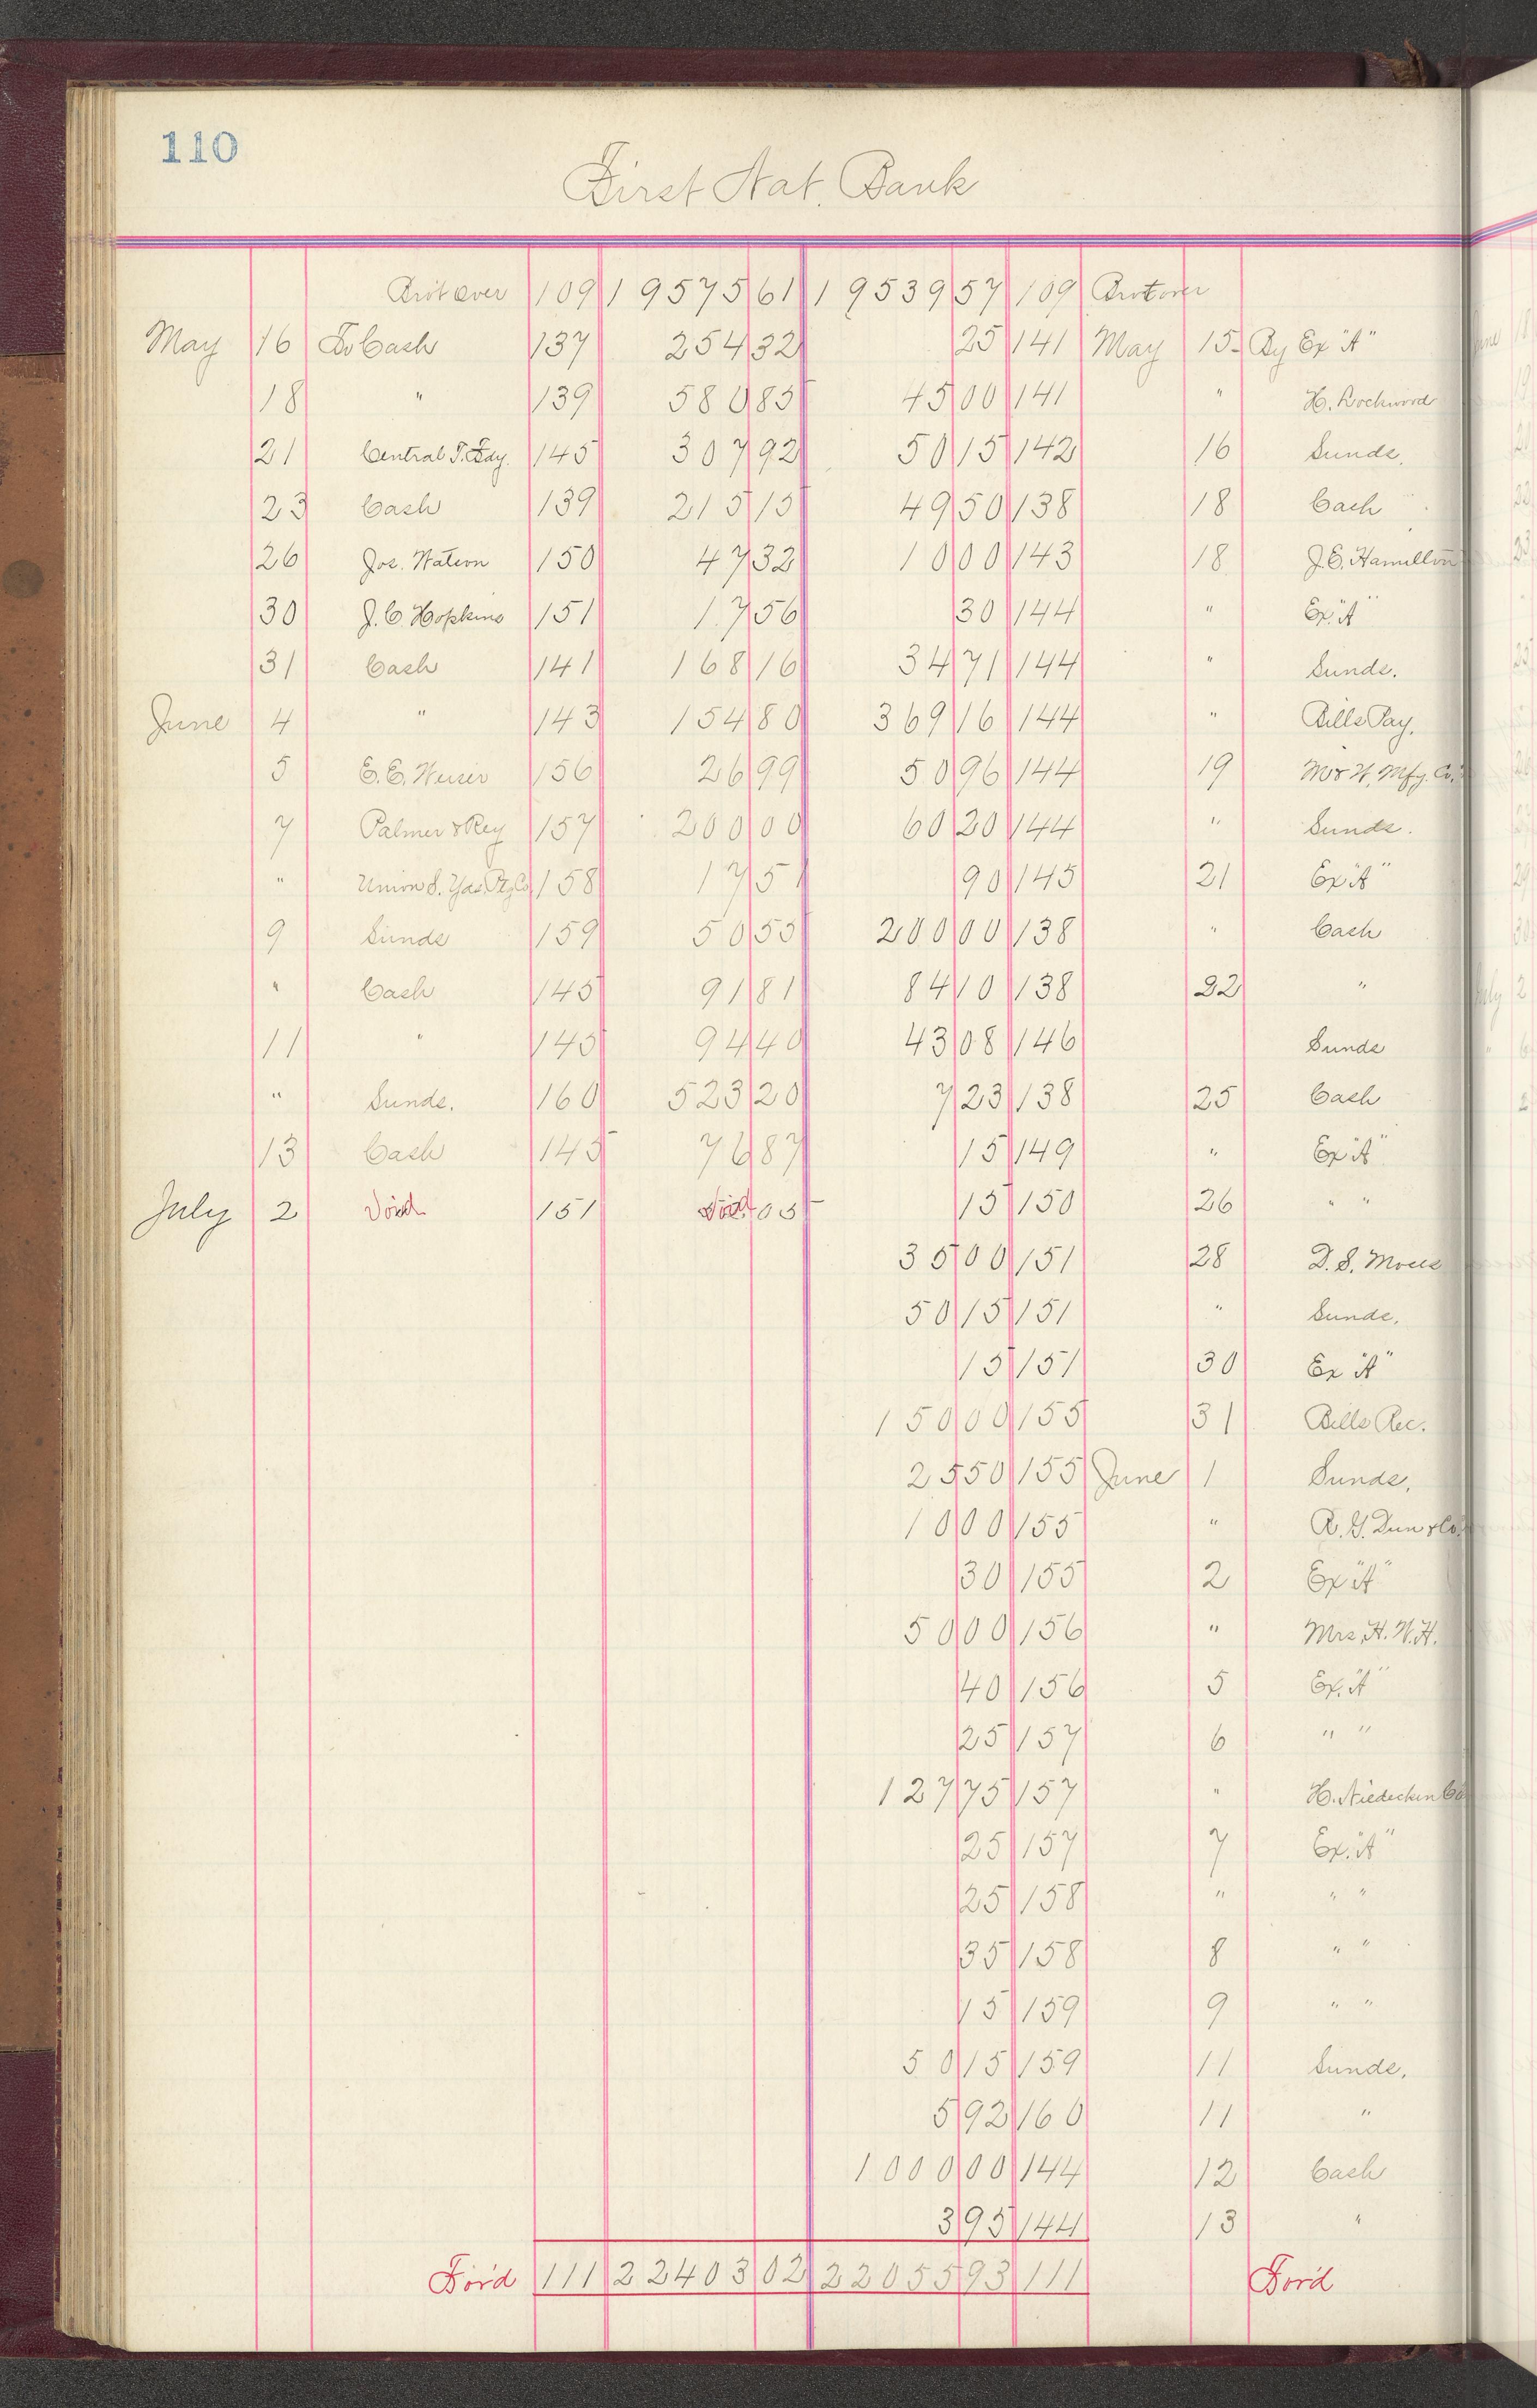 110
First Nat. Bank
Brot over 109 19575 61 19539 57 109 Brot over
May 16 To Cash 137 254 32 25 141 May 15 By Ex "A"
18 " 139 580 85 45 00 141 " H. Lockwood
21 Central T. Fdy. 145 307 92 50 15 142 16 Sunds.
23 Cash 139 215 15 49 50 138 18 Cash
26 Jos. Watson 150 47 32 10 00 143 18 J.E. Hamilton
30 J.C. Hopkins 151 17 56 30 144 " Ex. "A"
31 Cash 141 168 16 34 71 144 " Sunds.
June 4 " 143 154 80 369 16 144 " Bills Pay.
5 E.E. 156 26 99 50 96 144 19 M & W. Mfg. Co.
7 Palmer & Rey 157 200 00 60 20 144 " Sunds.
" Union S. Gas 158 17 51 90 145 21 Ex "A"
9 Sunds 159 50 55 200 00 138 " Cash
" Cash 145 91 81 84 10 138 22 "
11 " 145 94 40 43 08 146 Sunds
" Sunds. 160 523 20 7 23 138 25 Cash
13 Cash 145 76 87 15 149 " Ex "A"
July 2 Void 151 Void 05 15 150 26 " "
35 00 151 28 D.S. Moses
50 15 151 " Sunds.
15 151 30 Ex "A"
150 00 155 31 Bills Rec.
25 50 155 June 1 Sunds.
10 00 155 " R.G. Dun & Co.
30 155 2 Ex "A"
50 00 156 " Mrs. H.W.H.
40 156 5 Ex. "A"
25 157 6 " "
127 75 157 " H. Niedecken Co
25 157 7 Ex. "A"
25 158 " " "
35 158 8 " "
15 159 9 " "
50 15 159 11 Sunds.
5 92 160 11 "
1000 00 144 12 Cash
3 95 144 13 "
For'd 111 22403 02 22055 93 111 For'd